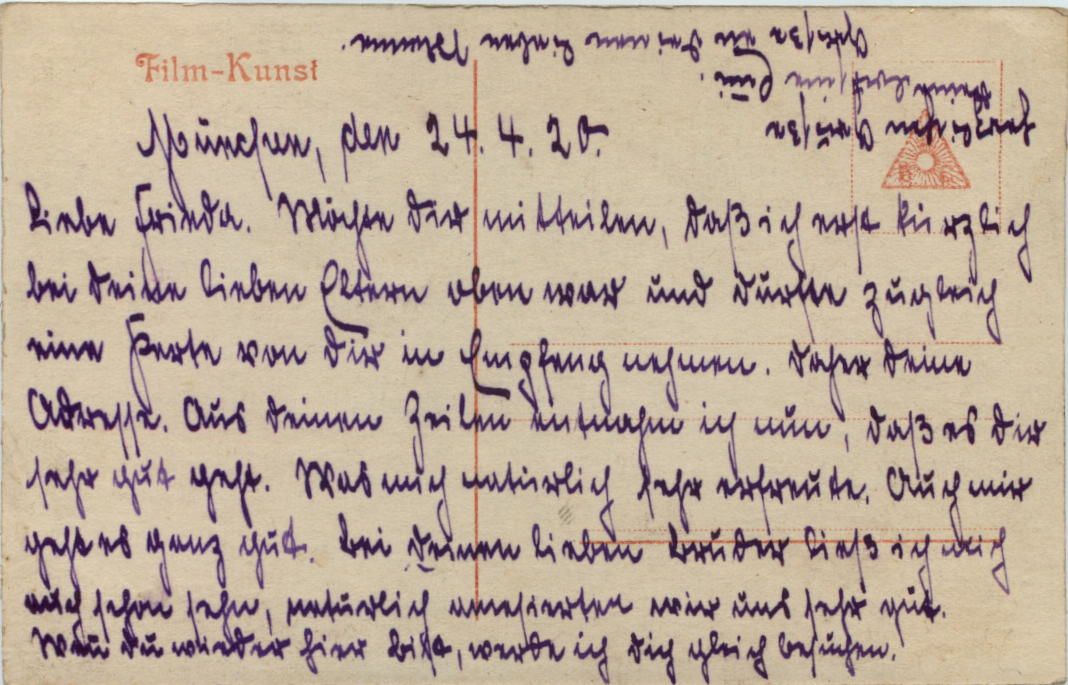 Film-Kunst
München, den 24. 4. 20.
Liebe Frieda. Möchte dir mitteilen, daß ich erst kürzlich
bei deine lieben Eltern oben war und durfte zugleich
eine Karte von dir in Empfang nehmen. Daher deine
Adresse. Aus deinen Zeilen entnahm ich nun, daß es dir
sehr gut geht. Was mich natürlich sehr erfreute. Auch mir
geht es ganz gut. Bei deinen lieben Bruder ließ ich mich
auch schon sehn, natürlich amesierten wir uns sehr gut.
Wen du wieder hier bist, werde ich dich gleich besuchen.
Herzlichen Grüße
Grüße an deinen lieben